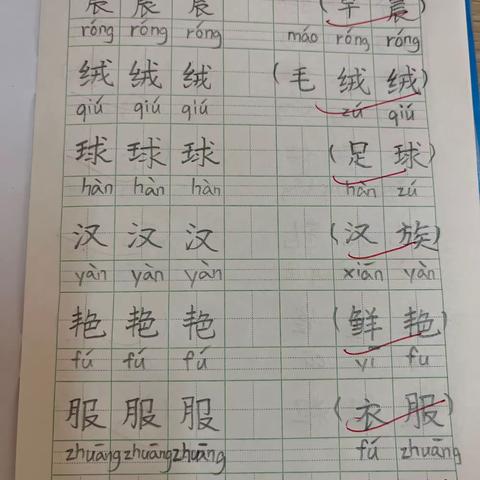 晨 晨 晨 (早 晨)
róng róng róng máo róng róng
绒 绒 绒 (毛 绒 绒)
qiú qiú qiú zú qiú
球 球 球 (足 球)
hàn hàn hàn hàn zú
汉 汉 汉 (汉 族)
yàn yàn yàn xiān yàn
艳 艳 艳 (鲜 艳)
fú fú fú yī fu
服 服 服 (衣 服)
zhuāng zhuāng zhuāng fú zhuāng